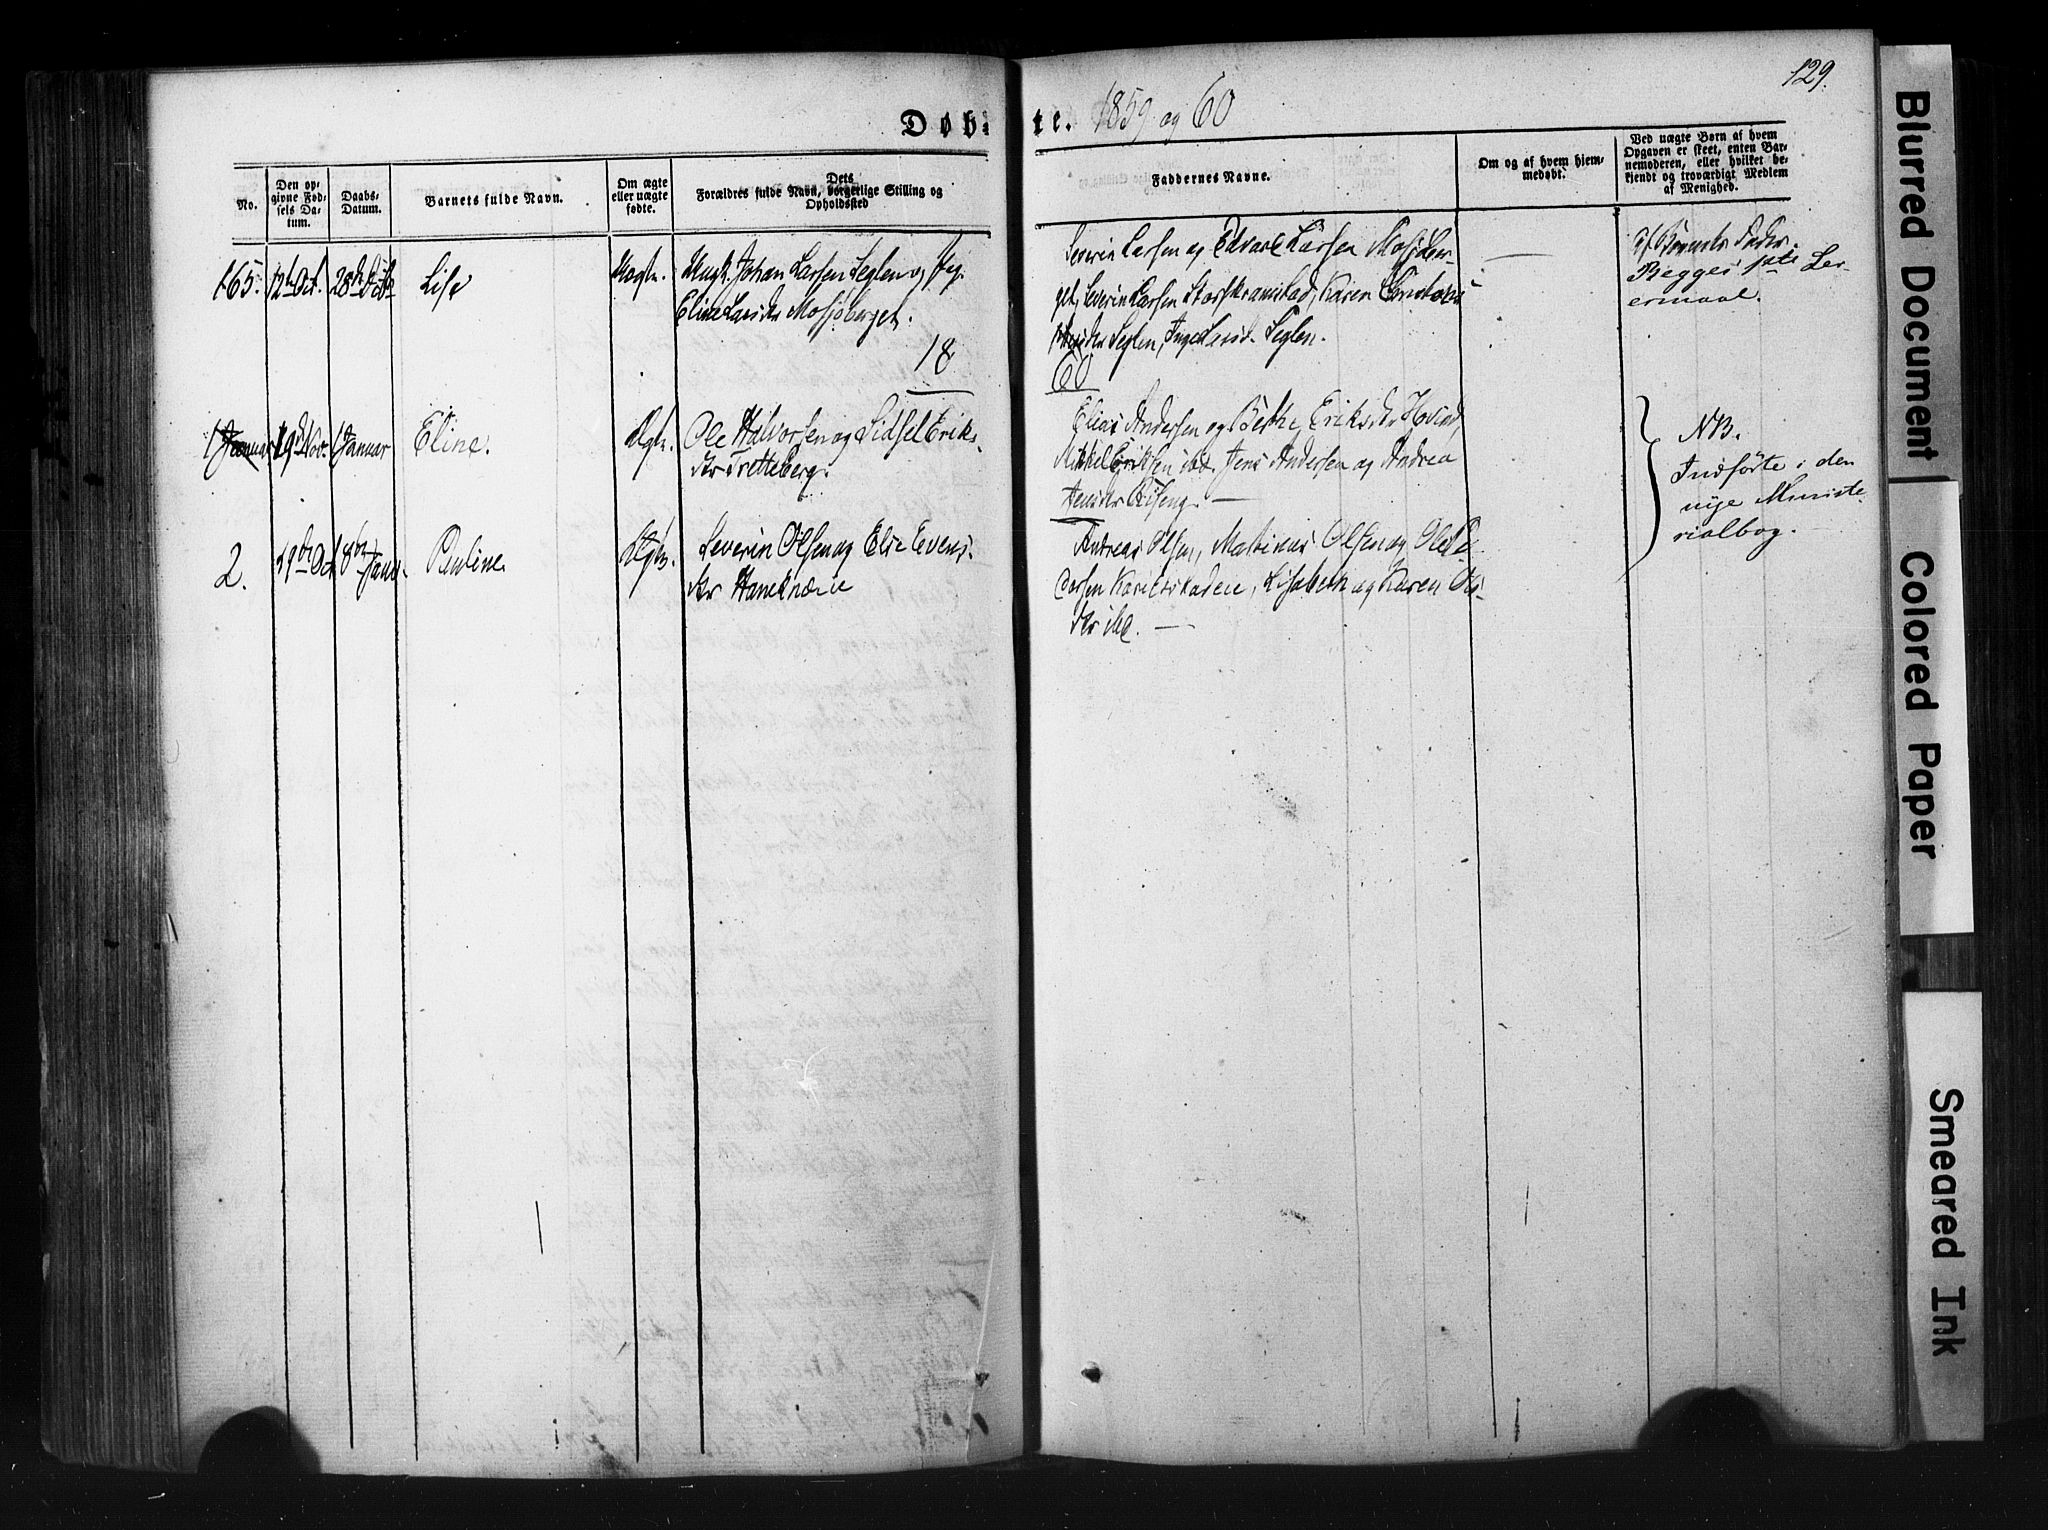 129.
Døb-
te. 1859 og 60
No.
Den op-
givne Fød-
sels Da-
tum.
Daabs-
Datum.
Barnets fulde Navn.
Om ægte
eller uægte
fødte.
Dets
Forældres fulde Navn, borgerlige Stilling og
Opholdssted
Faddernes Navne.
Om og af hvem hjem-
medøbt.
Ved uægte Børn af hvem
Opgaven er skeet, enten Bar-
nemoderen, eller hvilket be-
kjendt og troværdigt Medlem
af Menighed.
165. 12te Oct. 28de Lise Uægte. Johan Larsen Seglen og Pig.
Eline Larsdtr Mosjøberget.
Severin Larsen og Edvard Larsen Mosjøber-
get, Severin Larsen Storskramstad, Karen
Seglen, Inge Larsd. Seglen.
—
Af Barnets Fader.
Begges 1ste Lei-
ermaal.
18
60
1 Januar 19d Nov. 1 Januar Eline. Ægte. Ole Halvorsen og Sidsel Eriks-
dtr Tretteberg.
Elias Andersen og Berthe Eriksdtr
Mikkel Eriksen ibd. Jens Andersen og Andrea
—
NB.
Indførte i den
nye Ministe-
rialbog.
2. 29de Oct 8de Januar Pauline Ægte. Severin Olsen og Else Evens-
dtr
Andreas Olsen, Mathinus Olsen og Ole Pe-
dersen Lisabeth og Karen Ols-
dtr ibd. —
Blurred Document
Colored Paper
Smeared Ink